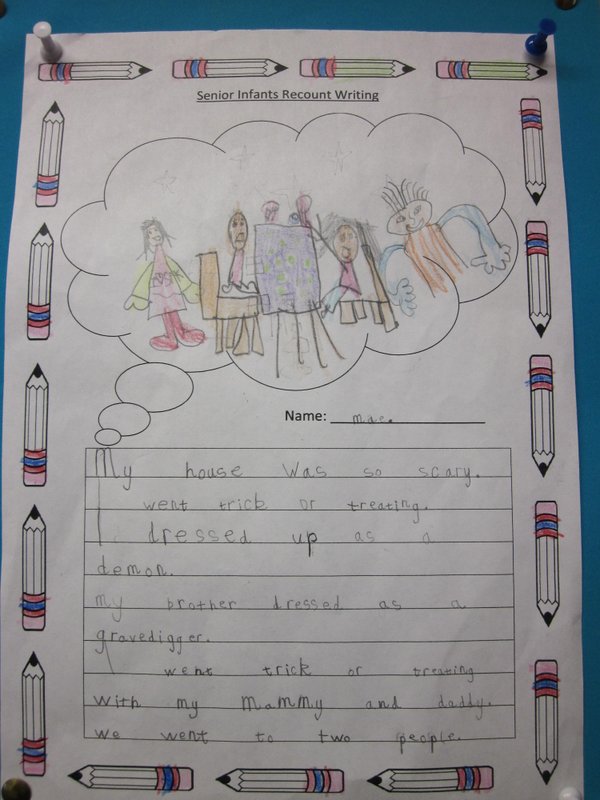 Senior Infants Recount Writing
Name: mae.
My house was so scary.
I went trick or treating.
I dressed up as a
demon.
my brother dressed as a
gravedigger.
I went trick or treating
with my mammy and daddy.
we went to two people.